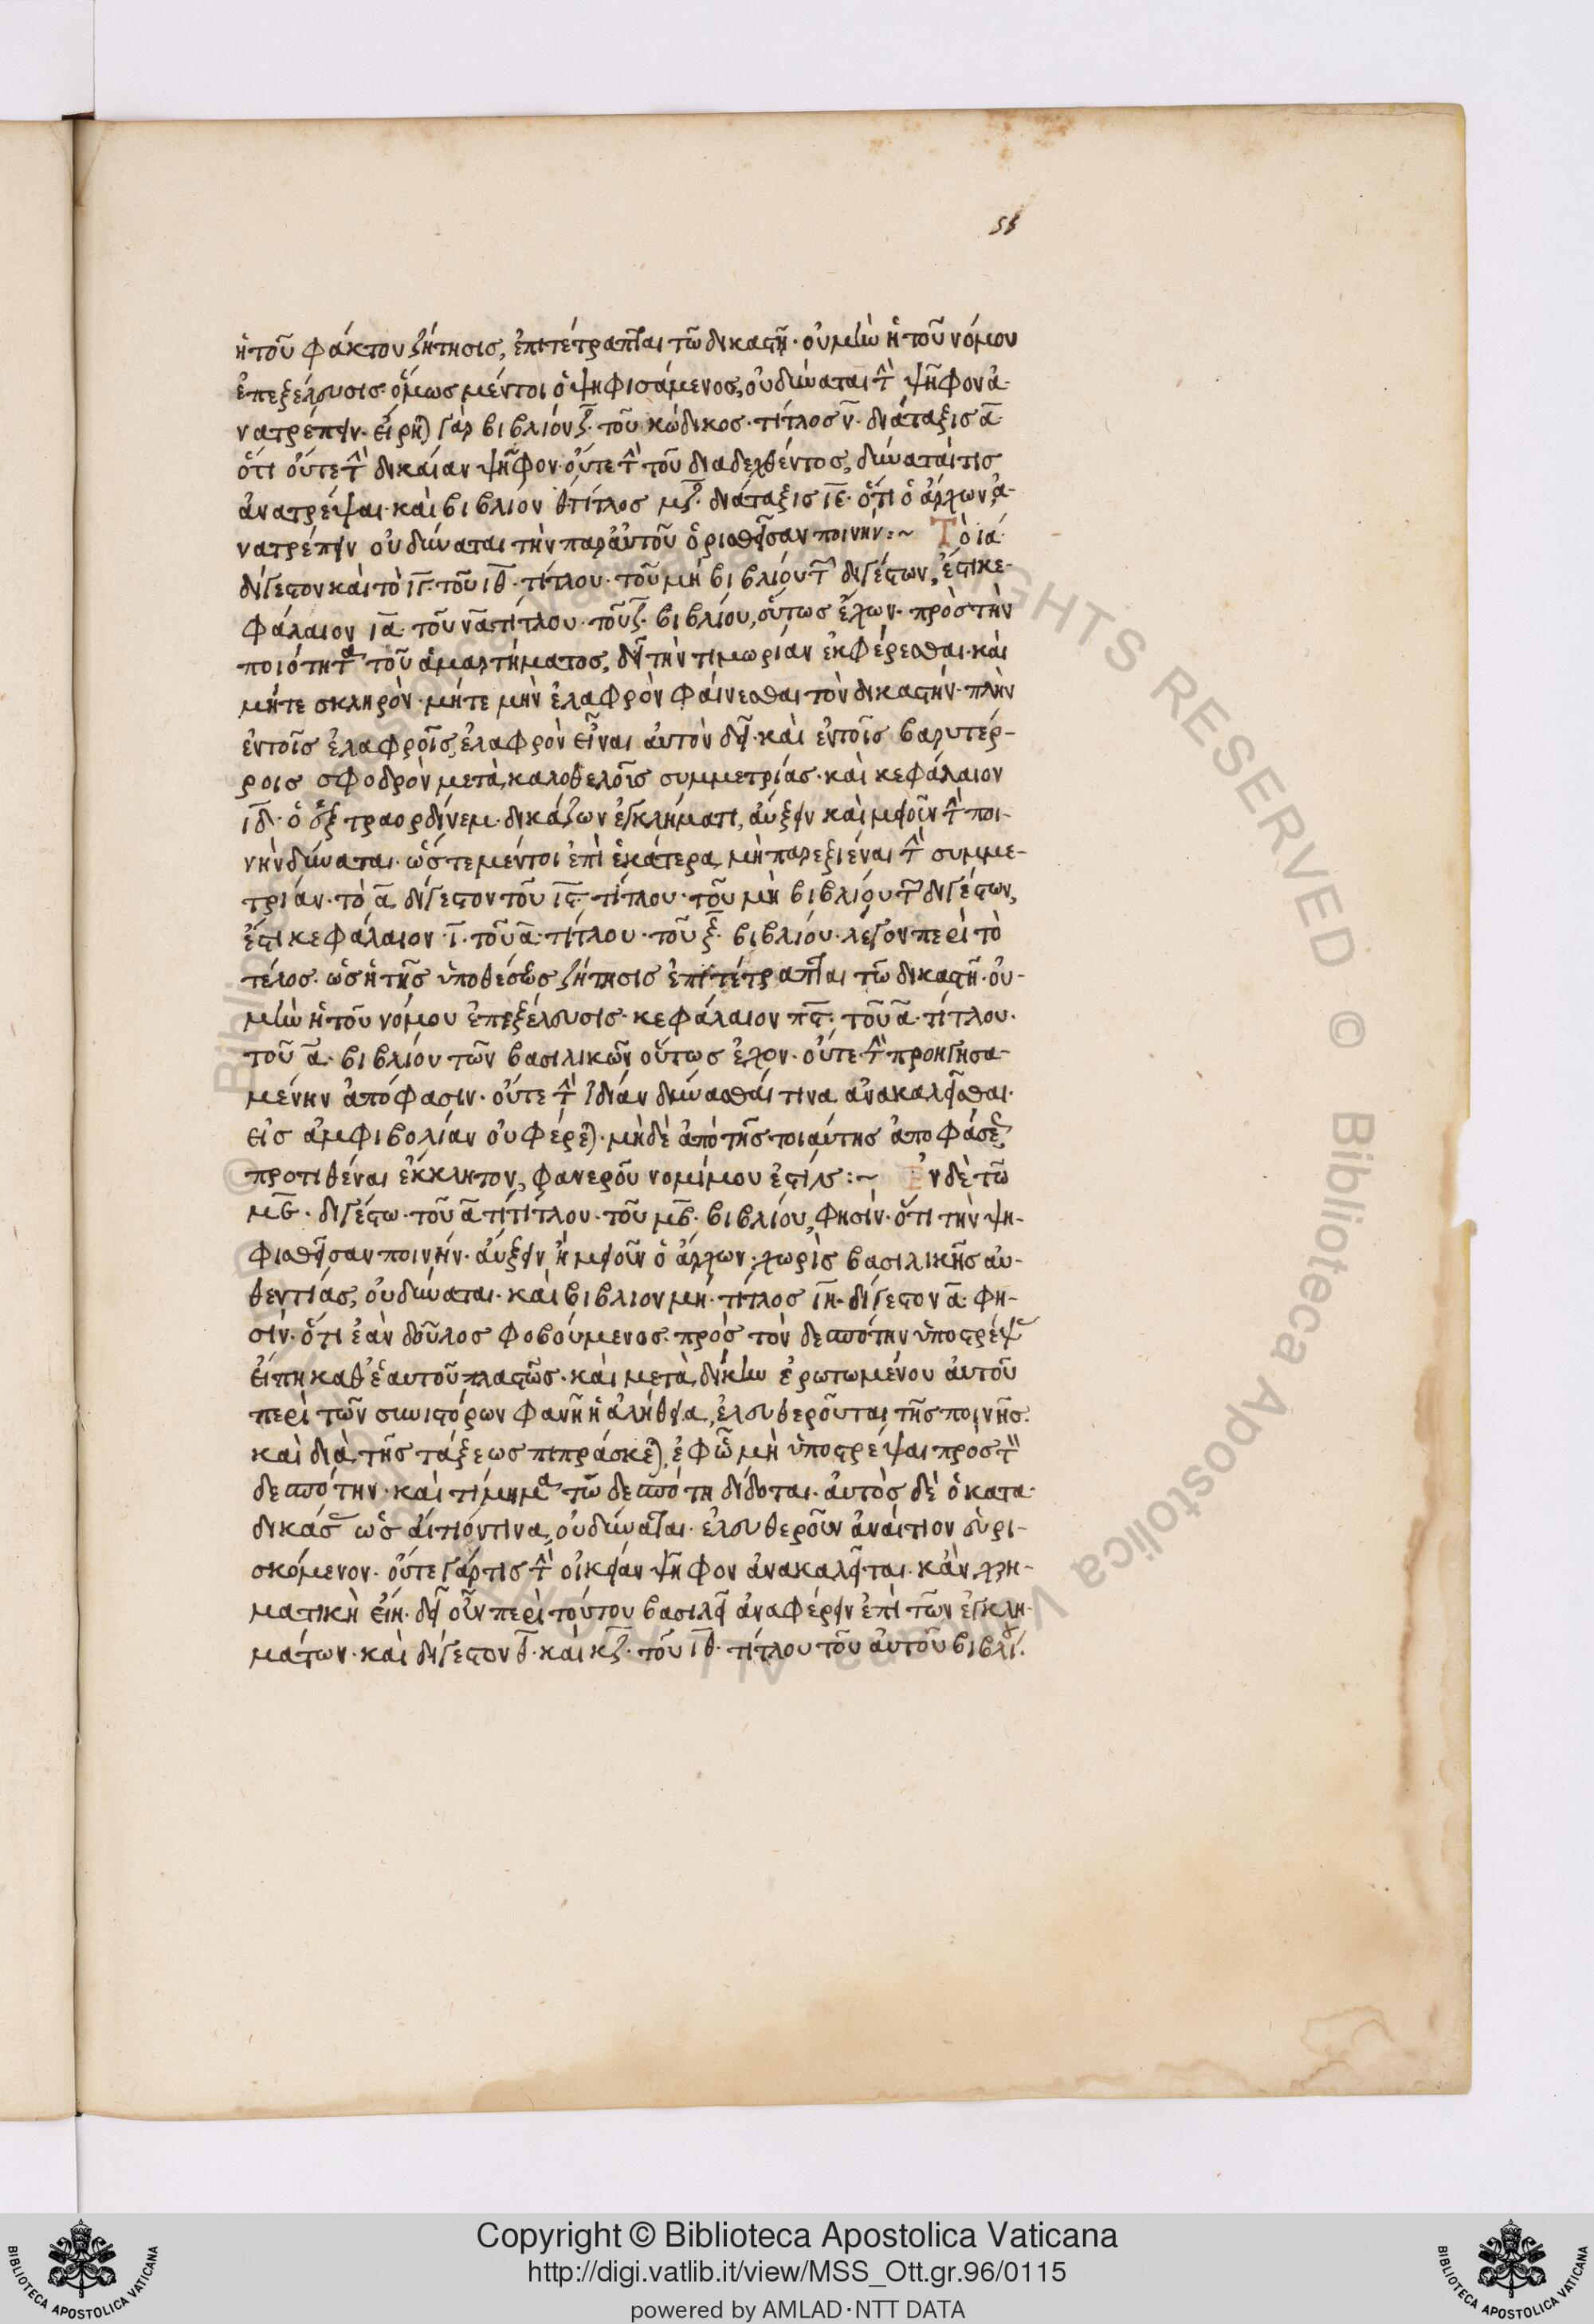 58
ἡ τοῦ φάκτου ζήτησις, ἐπιτέτραπται τῶ δικαστῆ· οὐ μὴν ἡ τοῦ νόμου
ἐπεξέλευσις· ὅμως μέντοι ὁ ψηφισάμενος, οὐ δύναται τὴν ψῆφον ἀ-
νατρέπειν· εἴρηται γὰρ βιβλίον ζ̅· τοῦ κώδικος· τίτλος ν̅· διάταξις α̅·
ὅτι οὔτε τὴν δικαίαν ψῆφον· οὔτε τὴν τοῦ διαδεχθέντος, δύναταί τις
ἀνατρέψαι· καὶ βιβλίον θ τίτλος μζ̅· διάταξις ιε̅· ὅτι ὁ ἄρχων ἀ-
νατρέπειν οὐ δύναται τὴν παρ' αὐτοῦ ὁρισθεῖσαν ποινήν :~ Τὸ ια
δίγεστον καὶ τὸ ιγ̅· τοῦ ιθ̅· τίτλου· τοῦ μη βιβλίου τῶν διγέστων, ἐστὶ κε-
φάλαιον ια̅· τοῦ να̅ τίτλου· τοῦ ξ̅· βιβλίου, οὕτως ἔχων· πρὸς τὴν
ποιότητα τοῦ ἁμαρτήματος, δεῖ τὴν τιμωρίαν ἐκφέρεσθαι· καὶ
μήτε σκληρὸν· μήτε μὴν ἐλαφρὸν φαίνεσθαι τὸν δικαστήν· πλὴν
ἐν τοῖς ἐλαφροῖς, ἐλαφρὸν εἶναι αὐτὸν δεῖ· καὶ ἐν τοῖς βαρυτέρ-
ροις σφοδρὸν μετὰ καλοθελοῖς συμμετρίας· καὶ κεφάλαιον
ιδ̅· ὁ ἐξτραορδίνεμ· δικάζων ἐγκλήματι, αὔξειν καὶ μειοῖν τὴν ποι-
νὴν δύναται· ὥστε μέντοι ἐπὶ ἑκάτερα μὴ παρεξιέναι τὴν συμμε-
τρίαν· τὸ α̅ δίγεστον τοῦ ις̅· τίτλου· τοῦ μη βιβλίου τῶν διγέστων,
ἐστὶ κεφάλαιον· ι̅· τοῦ α̅· τίτλου· τοῦ ξ̅· βιβλίου· λέγον περὶ τὸ
τέλος· ὡς ἡ τῆς ὑποθέσεως ζήτησις ἐπιτέτραπται τῶ δικαστῆ· οὐ
μὴν ἡ τοῦ νόμου ἐπεξέλευσις· κεφάλαιον πς̅· τοῦ α̅· τίτλου·
τοῦ α̅· βιβλίου τῶν βασιλικῶν οὕτως ἔχον· οὔτε τὴν προηγησα-
μένην ἀπόφασιν· οὔτε τὴν ἰδίαν δύνασθαί τινα ἀνακαλεῖσθαι·
εἰς ἀμφιβολίαν οὐ φέρεται· μὴ δὲ ἀπὸ τῆς τοιαύτης ἀποφάσεως
προτιθέναι ἔκκλητον, φανεροῦ νομίμου ἐστίν :~ Ἐν δὲ τῶ
με̅· διγέστω· τοῦ α̅ τιτίτλου· τοῦ μβ̅· βιβλίου, φησὶν· ὅτι τὴν ψη-
φισθεῖσαν ποινήν· αὔξειν ἢ μειοῖν ὁ ἄρχων· χωρὶς βασιλικῆς αὐ-
θεντίας, οὐ δύναται· καὶ βιβλιον μη· τίτλος ιη̅· δίγεστον α̅· φη-
σίν· ὅτι ἐὰν δοῦλος φοβούμενος· πρὸς τὸν δεσπότην ὑποστρέψαι
εἴπη καθ' ἑαυτοῦ πλαστῶς· καὶ μετὰ δίκην ἐρωτωμένου αὐτοῦ
περὶ τῶν συνιστόρων φανῆ ἡ ἀλήθεια, ἐλευθεροῦται τῆς ποινῆς·
καὶ διὰ τῆς τάξεως πιπράσκεται, ἐφ' ᾧ μὴ ὑποστρέψαι πρὸς τὸν
δεσπότην· καὶ τίμημα τῶ δεσπότη δίδοται· αὐτὸς δὲ ὁ κατα-
δικάσας ὡς αἴτιόν τινα, οὐ δύναται· ἐλευθεροῦν ἀναίτιον εὑρι-
σκόμενον· οὔτε γάρ τις τὴν οἰκείαν ψῆφον ἀνακαλεῖται· κἂν χρη-
ματικὴ εἴη· δεῖ οὖν περὶ τούτου βασιλεῖ ἀναφέρειν ἐπὶ τῶν ἐγκλη-
μάτων· καὶ δίγεστον θ̅· καὶ κζ̅· τοῦ ιθ̅· τίτλου τοῦ αὐτοῦ βιβλίου·
© Biblioteca Apostolica Vaticana ALL RIGHTS RESERVED
BIBLIOTECA APOSTOLICA VATICANA
Copyright © Biblioteca Apostolica Vaticana
http://digi.vatlib.it/view/MSS_Ott.gr.96/0115
powered by AMLAD·NTT DATA
BIBLIOTECA APOSTOLICA VATICANA